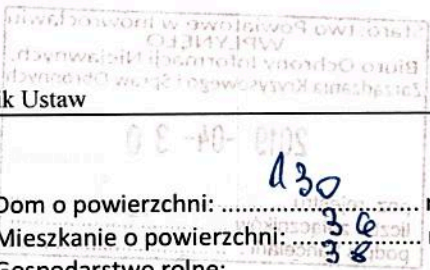 Starostwo Powiatowe w Inowrocławiu
WPŁYNĘŁO
Biuro Ochrony Informacji Niejawnych,
Zarządzania Kryzysowego i Spraw Obronnych
ik Ustaw
2019 -04- 30
Dom o powierzchni: 130
Mieszkanie o powierzchni: 36
38
Gospodarstwo rolne: